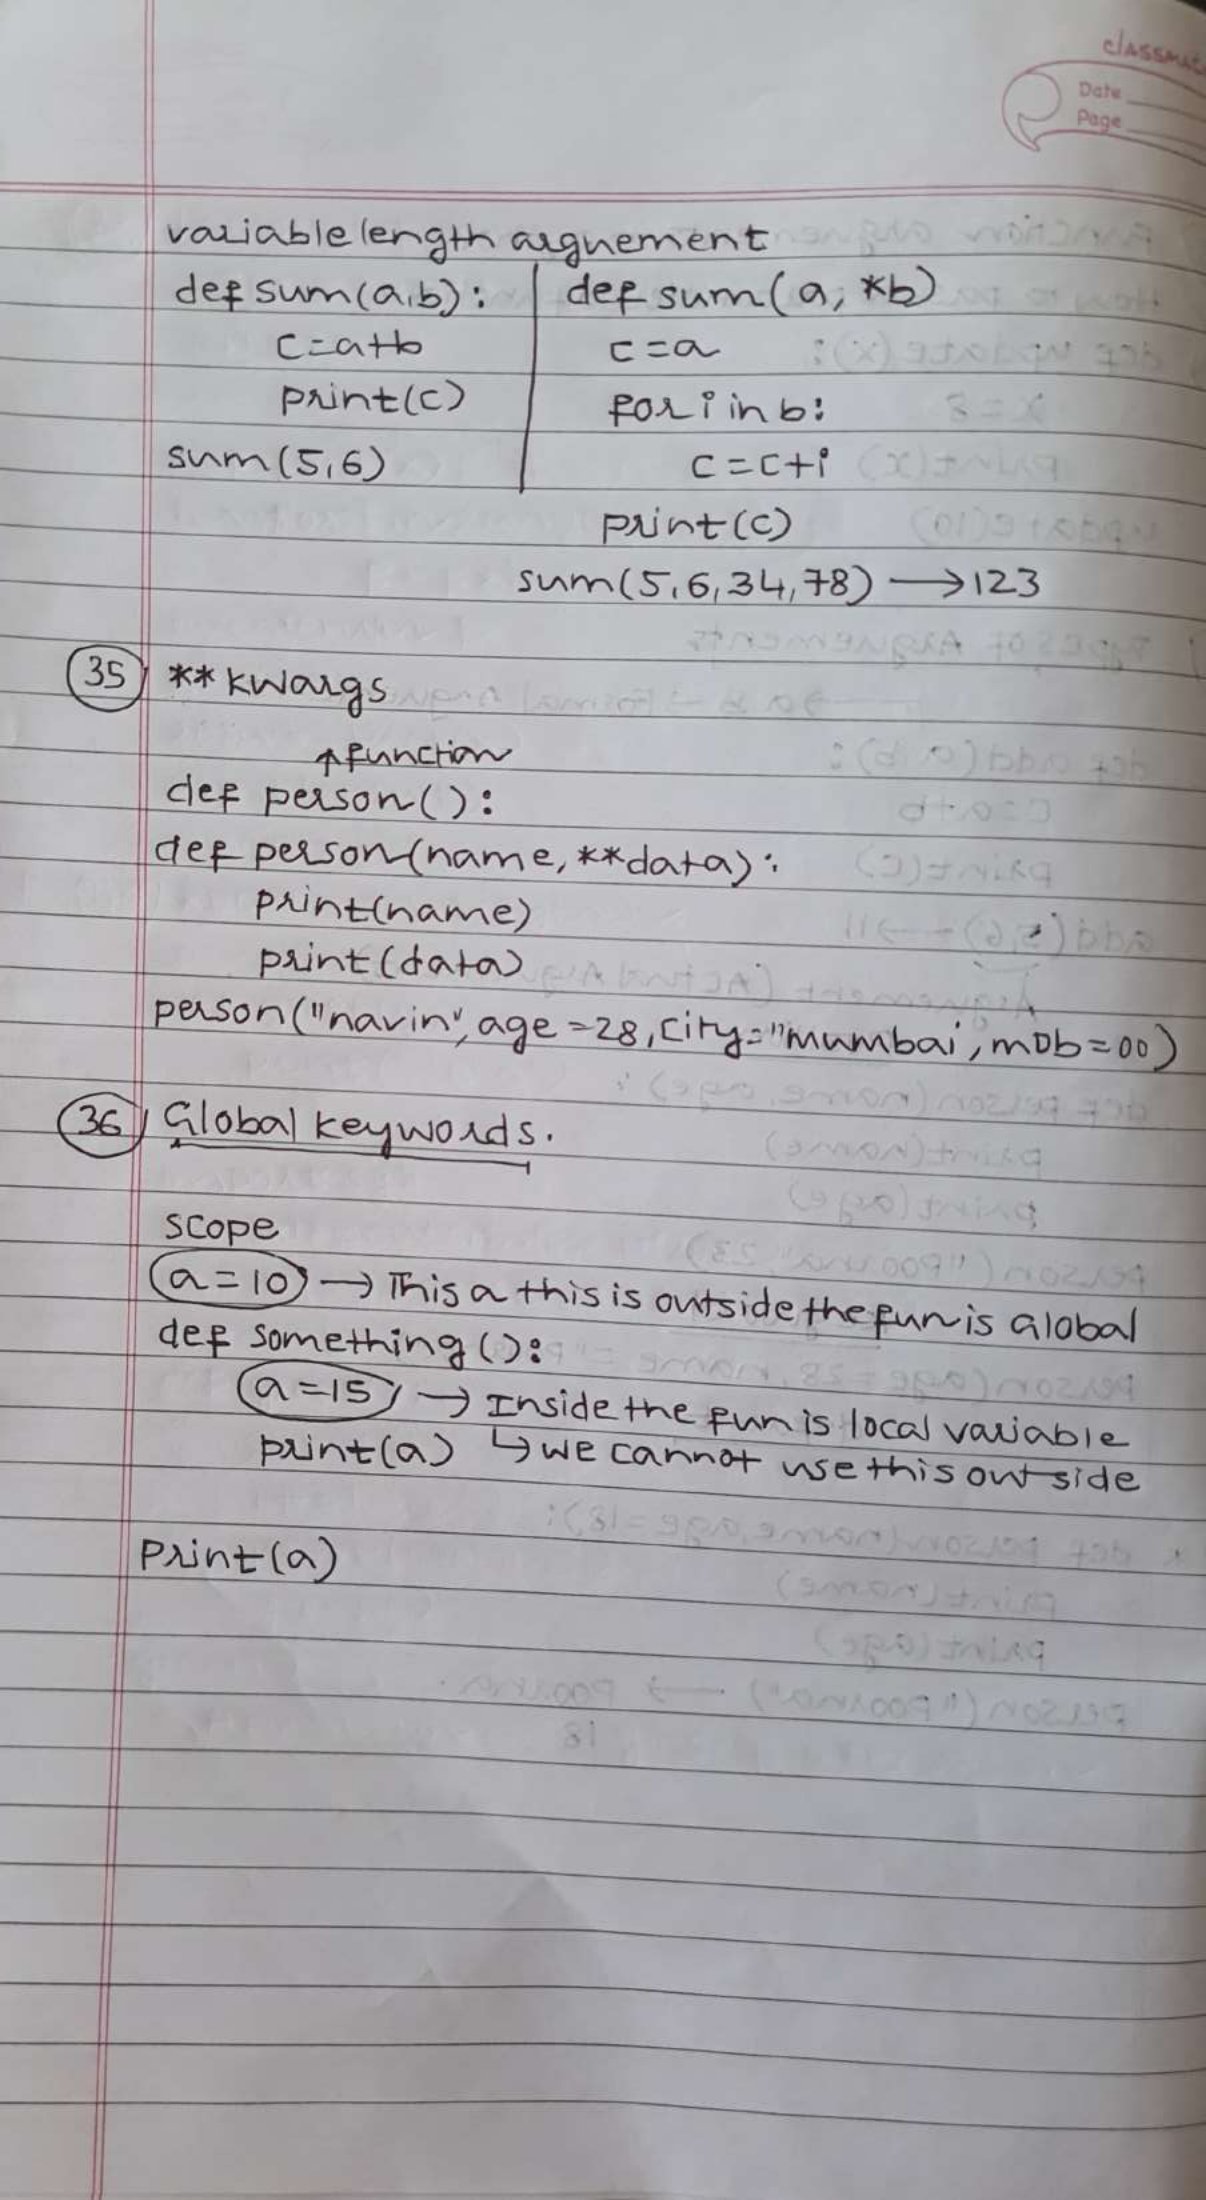 classmate
Date
Page
variable length arguement
def sum(a,b):
c=a+b
print(c)
sum(5,6)
def sum(a, *b)
c=a
for i in b:
c=c+i
print(c)
sum(5,6,34,78) → 123
35) ** kwargs
↑ function
def person():
def person(name, **data):
print(name)
print(data)
person("navin", age=28, city="mumbai, mob=00)
36) Global keywords.
scope
a=10 → This a this is outside the fun is Global
def something():
a=15 → Inside the fun is local variable
print(a) ↳ we cannot use this outside
Print(a)